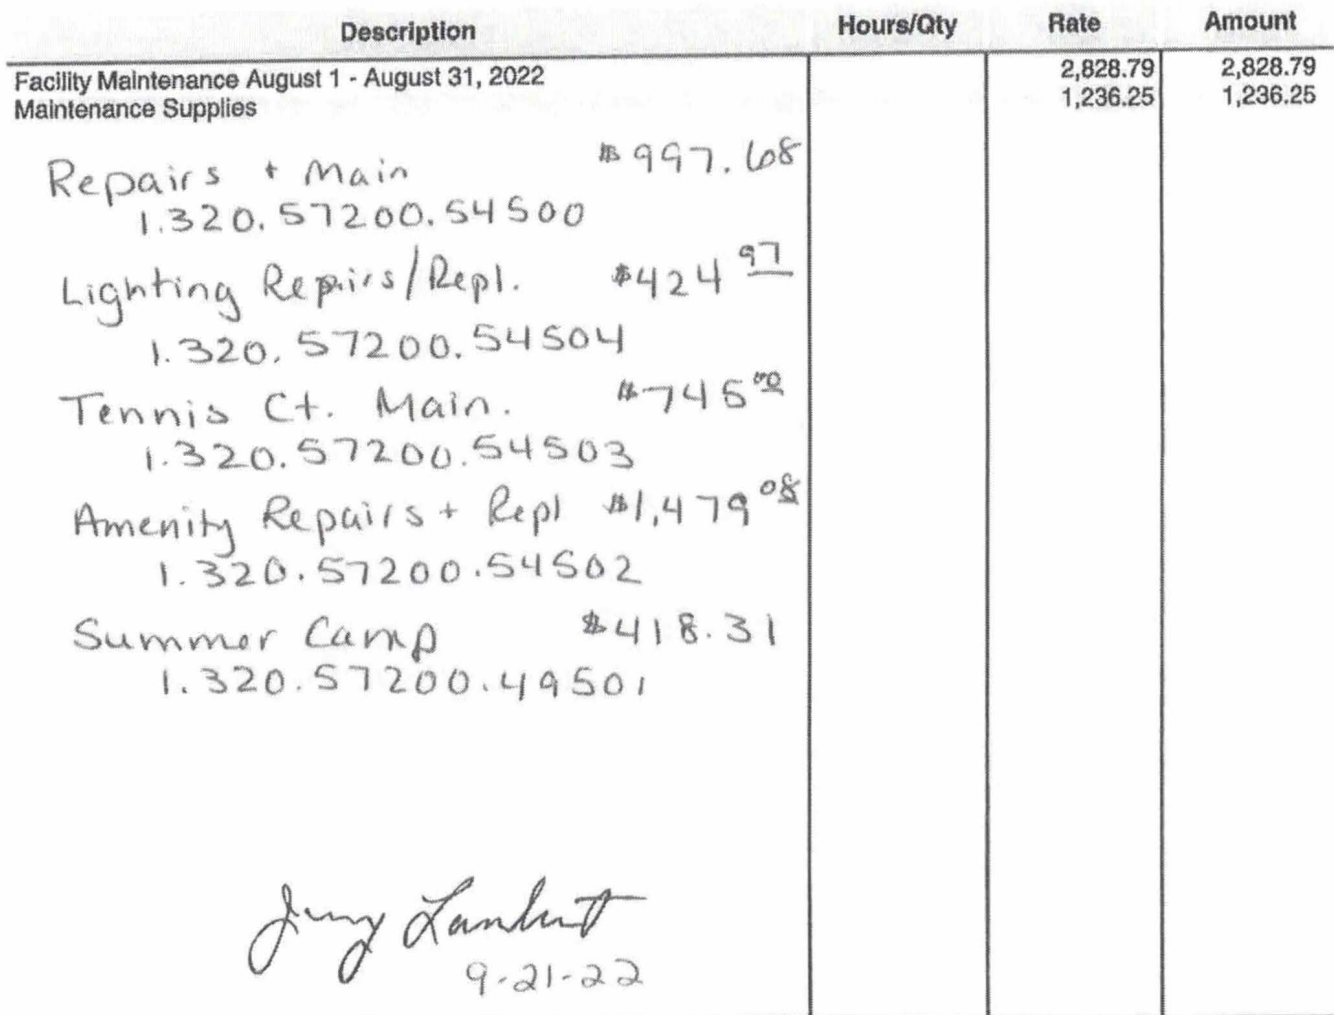 Description Hours/Qty Rate Amount
Facility Maintenance August 1 - August 31, 2022 2,828.79 2,828.79
Maintenance Supplies 1,236.25 1,236.25
Repairs + Main $997.68
1.320.57200.54500
Lighting Repairs/Repl. $424 97
1.320.57200.54504
Tennis Ct. Main. $745 00
1.320.57200.54503
Amenity Repairs + Repl $1,479 08
1.320.57200.54502
Summer Camp $418.31
1.320.57200.49501
Jerry Lambert
9-21-22